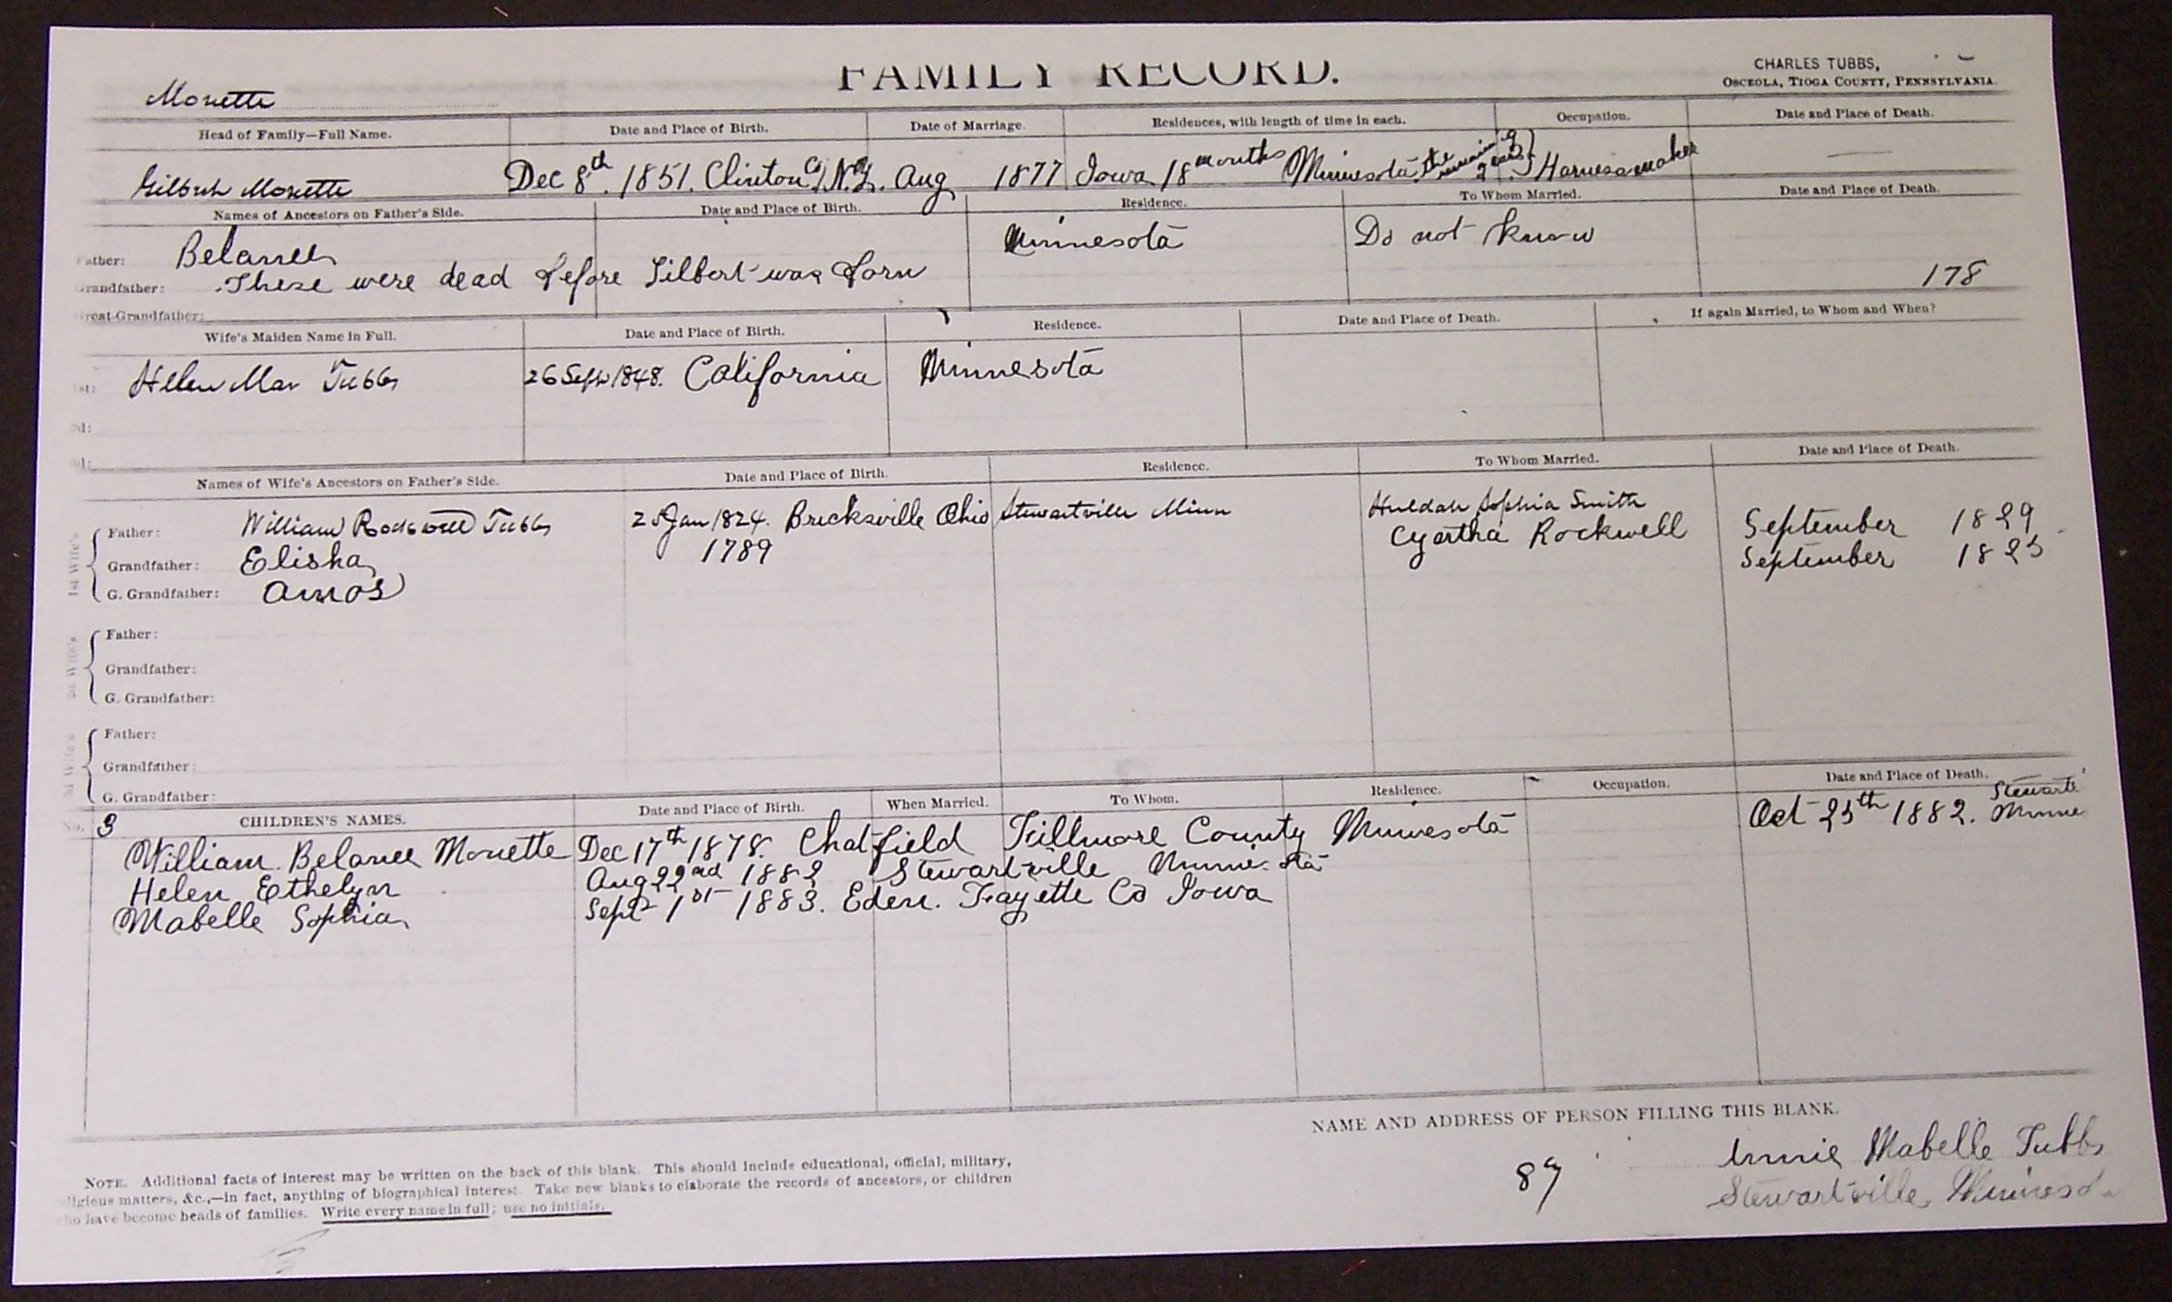 FAMILY RECORD.
CHARLES TUBBS,
OSCEOLA, TIOGA COUNTY, PENNSYLVANIA.
Monette
Head of Family—Full Name. Date and Place of Birth. Date of Marriage. Residences, with length of time in each. Occupation. Date and Place of Death.
Gilbert Monette Dec 8th. 1851. Clinton Co N.Y. Aug 1877 Iowa 18 months Minnesota the remaining years Harnessmaker
Names of Ancestors on Father's Side. Date and Place of Birth. Residence. To Whom Married. Date and Place of Death.
ather: Minnesota Do not know
randfather: These were dead before Gilbert was born 178
reat-Grandfather:
Wife's Maiden Name in Full. Date and Place of Birth. Residence. Date and Place of Death. If again Married, to Whom and When?
st: Helen Mar Tubbs 26 Sept 1848. California Minnesota
d:
d:
Names of Wife's Ancestors on Father's Side. Date and Place of Birth. Residence. To Whom Married. Date and Place of Death.
1st Wife's
Father: William Rockwell Tubbs 25 Jan 1824. Bricksville Ohio Stewartville Minn Huldah Sophia Smith
Grandfather: Elisha 1789 Rockwell September 1829
G. Grandfather: Amos September 1825
2d Wife's
Father:
Grandfather:
G. Grandfather:
3d Wife's
Father:
Grandfather:
G. Grandfather:
No. 3 CHILDREN'S NAMES. Date and Place of Birth. When Married. To Whom. Residence. Occupation. Date and Place of Death.
William Monette Dec 17th 1878. Chatfield Fillmore County Minnesota Oct 25th 1882. Stewart Minne
Helen Ethelyn Aug 22nd 1882 Stewartville Minnesota
Mabelle Sophia Sept 1st 1883. Eden. Fayette Co Iowa
NAME AND ADDRESS OF PERSON FILLING THIS BLANK.
Annie Mabelle Tubbs
89
Stewartville Minnesota
NOTE. Additional facts of interest may be written on the back of this blank. This should include educational, official, military,
ligious matters, &c.,—in fact, anything of biographical interest. Take new blanks to elaborate the records of ancestors, or children
ho have become heads of families. Write every name in full; use no initials.